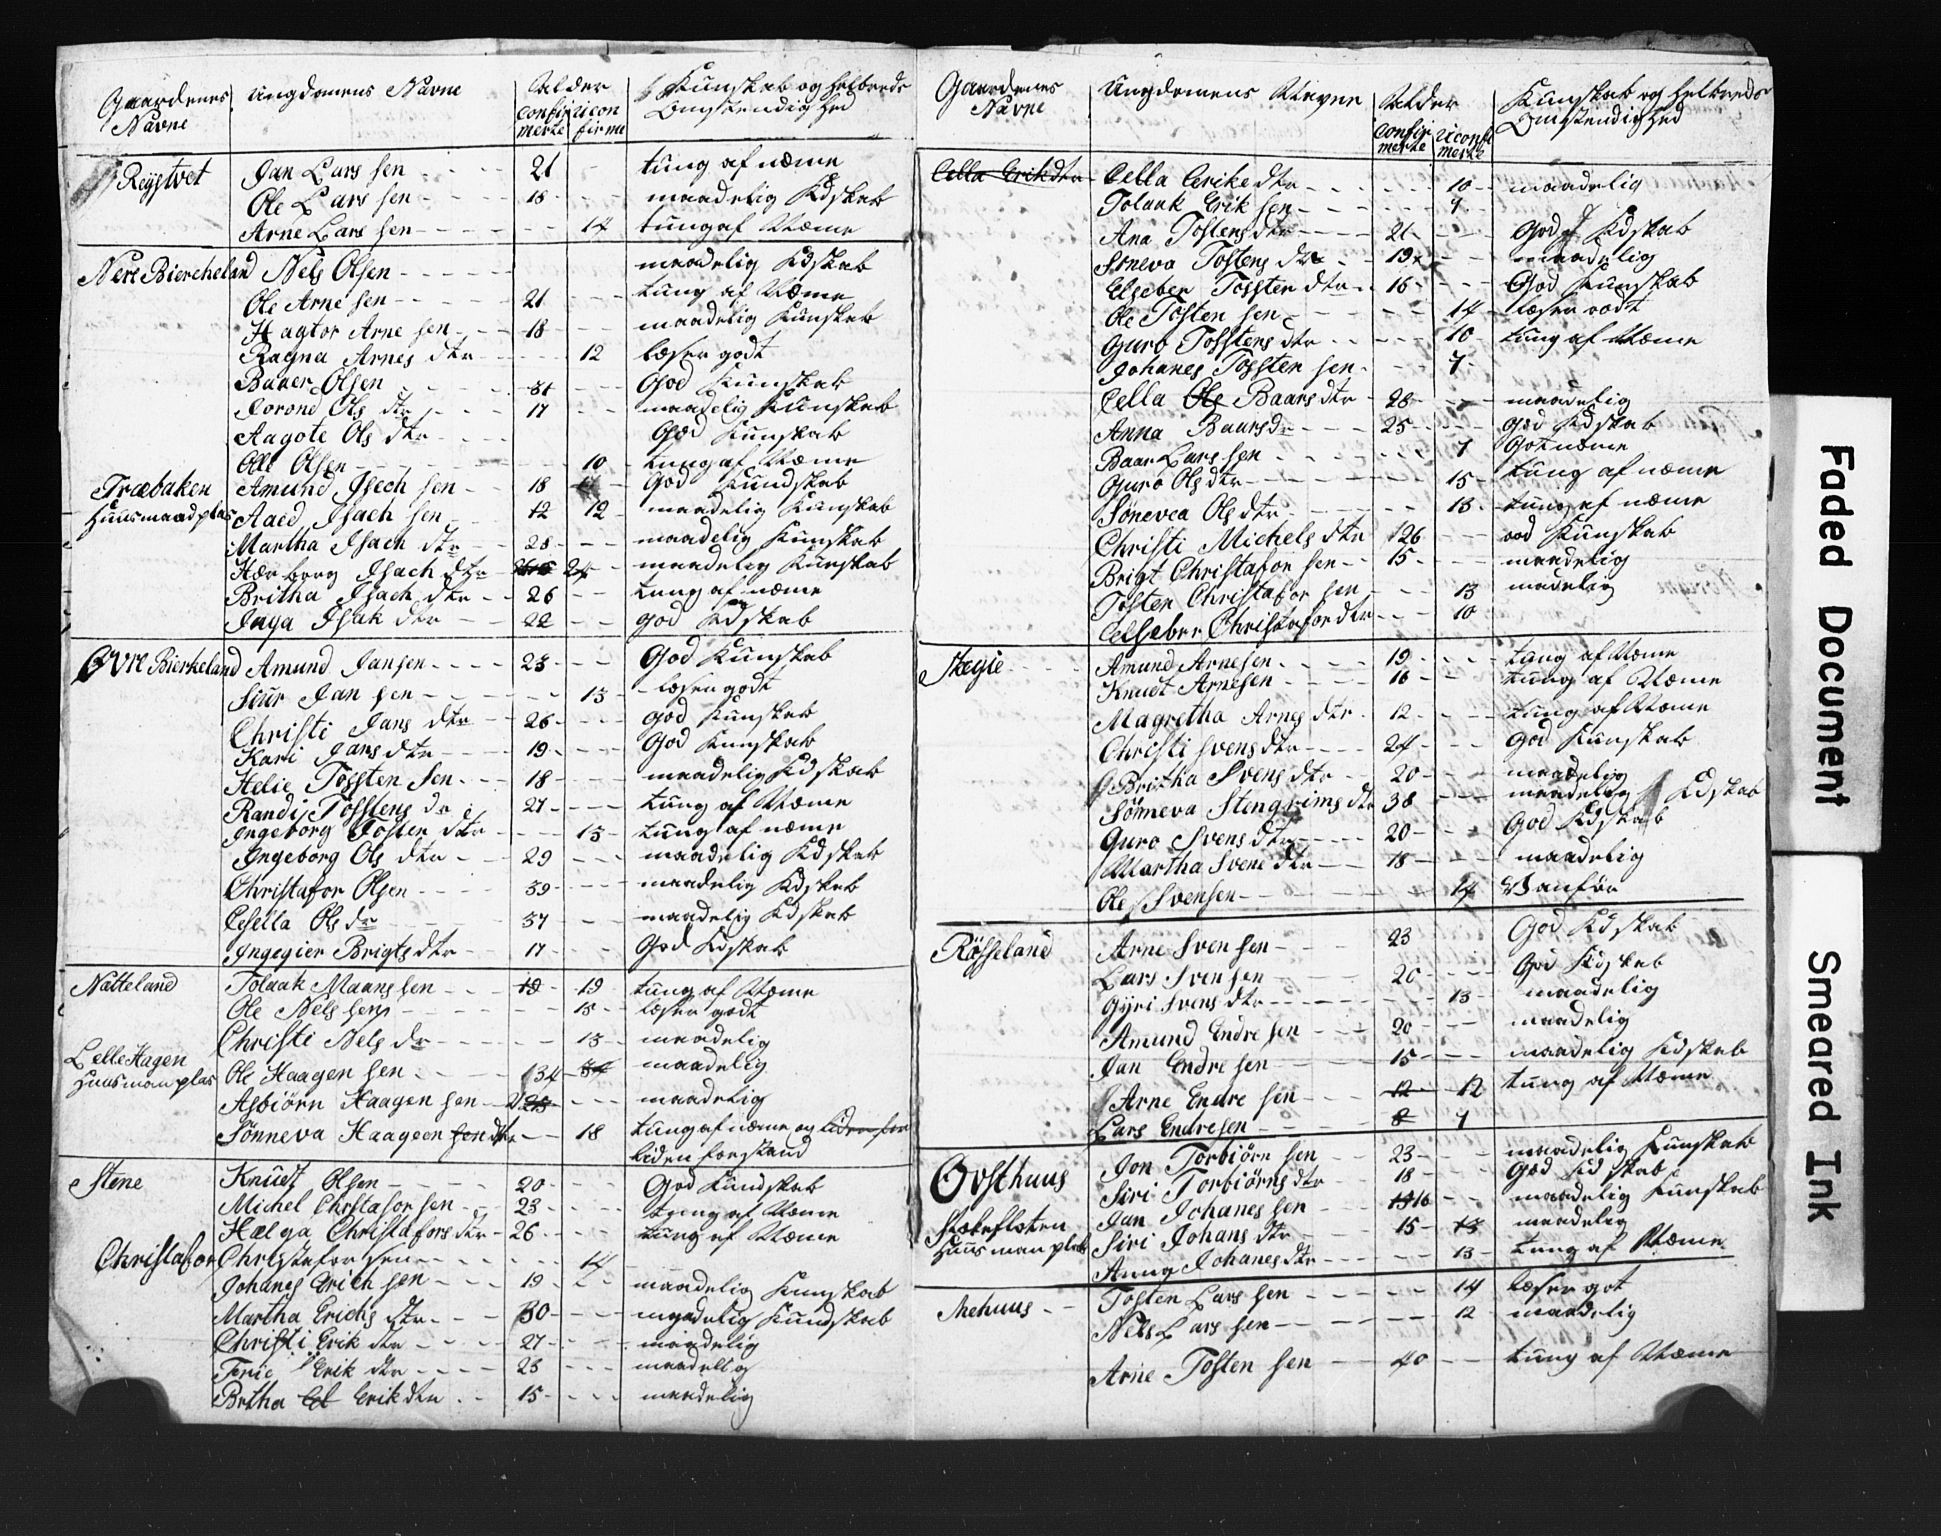 Gaardenes Navne | Ungdomens Navne | Alder | Kunskab og helbreds Omstendighed
Confirmerte | Uconfirme
Reystvet Jan Larssen 21 tung af næme
Ole Larssen 18 maadelig Kdskab
Arne Larssen 14 tung af Næme
Nere Biercheland Nels Olsen maadelig Kdskab
Ole Arnesen 21 tung af Næme
Hagtor Arnesen 18 maadelig Kunskab
Ragna Arnes dtr 12 læser godt
Baaer Olsen 31 God Kunskab
Torond Ols dtr 17 maadelig Kunskab
Aagote Ols dtr God Kunskab
Olle Olsen 10 tung af Næme
Træbaken Amund Isech sen 18 God Kundskab
Huusmandplas Aaed Isach sen 12 12 maadelig Kunskab
Martha Isach dtr 28 maadelig Kunskab
Hær borg Isach dtr 24 maadeleg Kunskab
Britha Isach dtr 26 tung af næme
Inga Isak dtr 22 god Kdskab
Øvre Bierkeland Amund Jansen 23 God Kunskab
Siur Jan sen 13 læser godt
Christi Jans dtr 26 god Kunskab
Kari Jans dtr 19 God Kunskab
Helie Tossten sen 18 maadelig Kdskab
Randi Tosstens dr 21 tung af Næme
Ingeborg Tosten dtr 13 tung af næme
Ingeborg Ols dtr 29 maadelig Kdskab
Christafor Olsen 39 maadelig Kdskab
Cesella Ols dr 37 maadelig Kdskab
Ingegier Brigts dtr 17 God Kdskab
Natteland Tolaak Maans sen 18 19 tung af Næme
Ole Nels sen 15 læser godt
Christi Nels dr 13 maadelig
Lelle Hagen Ole Haagen sen 34 maadelig
Huusmanplas
Asbiørn Haagen sen maadelig
Sønneva Haageen sen dtr 18 tung af næme og liden for
liden forstand
Stene Knudt Olsen 20 God Kundskab
Michel Christafor sen 23 tung af Næme
Hælga Christafors dtr 26 tung af Næme
Christafor Christafor sen 14
Johanes Erich sen 19 maadelig Kunskab
Martha Erichs dtr 30 maadelig Kundskab
Christi Erik dtr 27 maadelig
Erik dtr 23 maadelig
Britha Erik dtr 15 maadelig
Gaardenes Navne | Ungdomens Navne | Alder | Kunskab og helbreds Omstendighed
Confirmerte | Uconfirmerte
Cella Erikdtr Cella Erike dtr 10 maadelig
Tolaak Erik sen 7
Ana Tostens dtr 21 God Kdskab
Søneva Tostens dtr 19 maadelig
Elseber Tossten dtr 16 God Kunskab
Ole Tosten sen 14 læser vodt
Guro Tosstens dtr 10 tung af Næme
Johanes Tossten sen 7
Cella Ols Baars dtr 28 maadelig
Anna Baars dr 25 god Kdskab
Baar Lars sen 7 Got næme
Guro Ols dtr 15 tung af næme
Sønevea Ols dtr 13 tung af næme
Christi Michels dtr 126 god Kunskab
Brigt Christafor sen 15 maadelig
Tosten Christafor sen 13 madelig
Celseber Christafor dtr 10
Skeyie Amund Arnesen 19 tung af Næme
Knudt Arnesen 16 tung af Næme
Magretha Arnes dtr 12 tung af Næme
Christi Svens dtr 24 god Kunskab
Britha Svens dtr 20 maadelig
Sønneva Stengrims dtr 38 maadelig Kdskab
Guro Svens dtr 20 God Kdskab
Martha Svens dtr 18 maadelig
Ole Svensen 14 Vanfør
Røsseland Arne Sven sen 23 God Kdskab
Lars Svensen 20 God Kdskab
Gyri Svens dtr 13 maadelig
Amund Endre sen 20 maadelig
Jan Endre sen 15 maadelig Kdskab
Arne Endre sen 12 12 tung af Næme
Lars Endresen 8 7
Øvsthuus Jon Torbiørn sen 23 maadelig Kunskab
Siri Torbiørns dtr 18 God Kdskab
Jan Johanes sen 16 maadelig Kunskab
Stekeflaten Siri Johans dtr 15 13 maadelig
Huusmanplas Anna Johanes dtr 13 tung af Næme
Nehuus Tosten Lars sen 14 læser got
Nels Lars sen 12 maadelig
Arne Tosten sen 40 tung af Næme
Faded Document
Smeared Ink